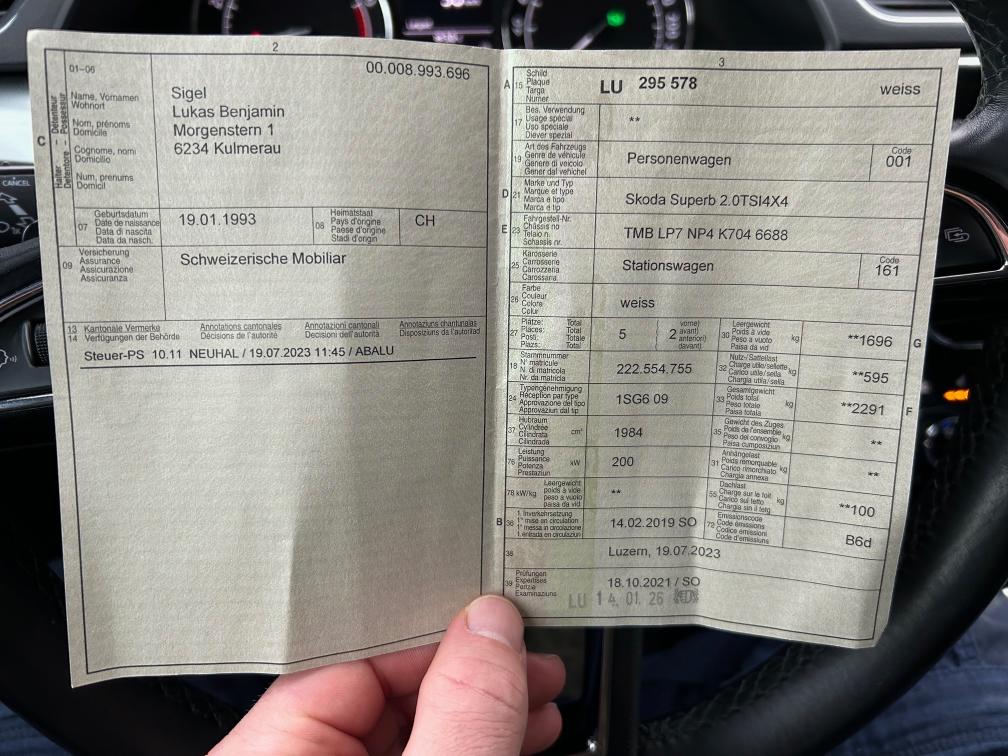 2
01-06
00.008.993.696
C
Halter - Détenteur
Detentore - Possessur
Name, Vornamen
Wohnort
Nom, prénoms
Domicile
Cognome, nomi
Domicilio
Num, prenums
Domicil
Sigel
Lukas Benjamin
Morgenstern 1
6234 Kulmerau
07
Geburtsdatum
Date de naissance
Data di nascita
Data da nasch.
19.01.1993
08
Heimatstaat
Pays d'origine
Paese d'origine
Stadi d'origin
CH
09
Versicherung
Assurance
Assicurazione
Assicuranza
Schweizerische Mobiliar
13
14
Kantonale Vermerke
Verfügungen der Behörde
Annotations cantonales
Décisions de l'autorité
Annotazioni cantonali
Decisioni dell'autorità
Annotaziuns chantunalas
Disposiziuns da l'autoritad
Steuer-PS 10.11 NEUHAL / 19.07.2023 11:45 / ABALU
3
A
15
Schild
Plaque
Targa
Numer
LU 295 578
weiss
17
Bes. Verwendung
Usage spécial
Uso speciale
Diever spezial
**
19
Art des Fahrzeugs
Genre de véhicule
Genere di veicolo
Gener dal vehichel
Personenwagen
Code
001
D
21
Marke und Typ
Marque et type
Marca e tipo
Marca e tip
Skoda Superb 2.0TSI4X4
E
23
Fahrgestell-Nr.
Châssis no
Telaio n.
Schassis nr.
TMB LP7 NP4 K704 6688
25
Karosserie
Carrosserie
Carrozzeria
Carossaria
Stationswagen
Code
161
26
Farbe
Couleur
Colore
Colur
weiss
27
Plätze: Total
Places: Total
Posti: Totale
Plazs: Total
5
2
vorne)
avant)
anteriori)
davant)
30
Leergewicht
Poids à vide
Peso a vuoto
Paisa da vid
kg
**1696
G
18
Stammnummer
N° matricule
N. di matricola
Nr. da matricla
222.554.755
32
Nutz-/Sattellast
Charge utile/sellette
Carico utile/sella
Chargia utila/sella
kg
**595
24
Typengenehmigung
Réception par type
Approvazione del tipo
Approvaziun dal tip
1SG6 09
33
Gesamtgewicht
Poids total
Peso totale
Paisa totala
kg
**2291
F
37
Hubraum
Cylindrée
Cilindrata
Cilindrada
cm³
1984
35
Gewicht des Zuges
Poids de l'ensemble
Peso del convoglio
Paisa cumposiziun
kg
**
76
Leistung
Puissance
Potenza
Prestaziun
kW
200
31
Anhängelast
Poids remorquable
Carico rimorchiato
Chargia annexa
kg
**
78 kW/kg
Leergewicht
poids à vide
peso a vuoto
paisa da vid
**
55
Dachlast
Charge sur le toit
Carico sul tetto
Chargia sin il tetg
kg
**100
B
36
1. Inverkehrsetzung
1re mise en circulation
1a messa in circolazione
1. entrada en circulaziun
14.02.2019 SO
72
Emissionscode
Code émissions
Codice emissioni
Code d'emissiuns
B6d
38
Luzern, 19.07.2023
39
Prüfungen
Expertises
Perizie
Examinaziuns
18.10.2021 / SO
LU 14.01.26
CANCEL